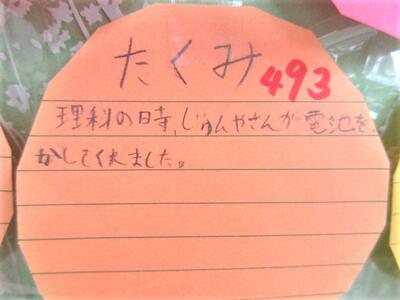 たくみ
493
理科の時、じゅんやさんが電池を
かしてくれました。